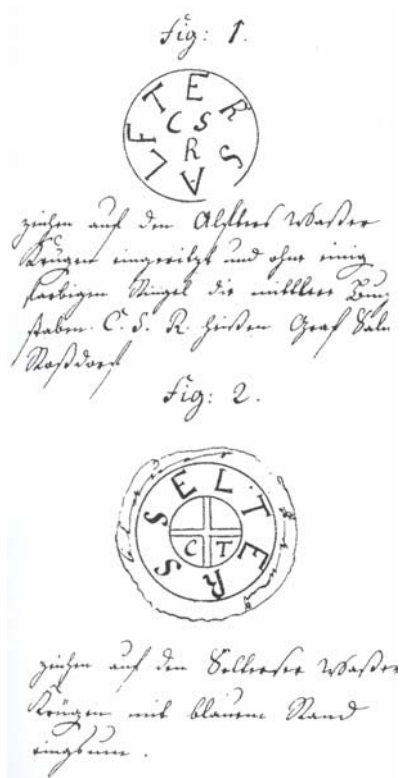 Fig: 1.
ALFTERS
C S
R
zeichen auf den Alfters Waßer
Krügen eingeritzt und ohne einig
farbigen Ringel die mittlere
staben C. S. R. heißen Graf Salm
Roßdorf
Fig: 2.
SELTERS
C T
zeichen auf den Selterser Waßer
Krügen mit blauem Rand
ringsum.